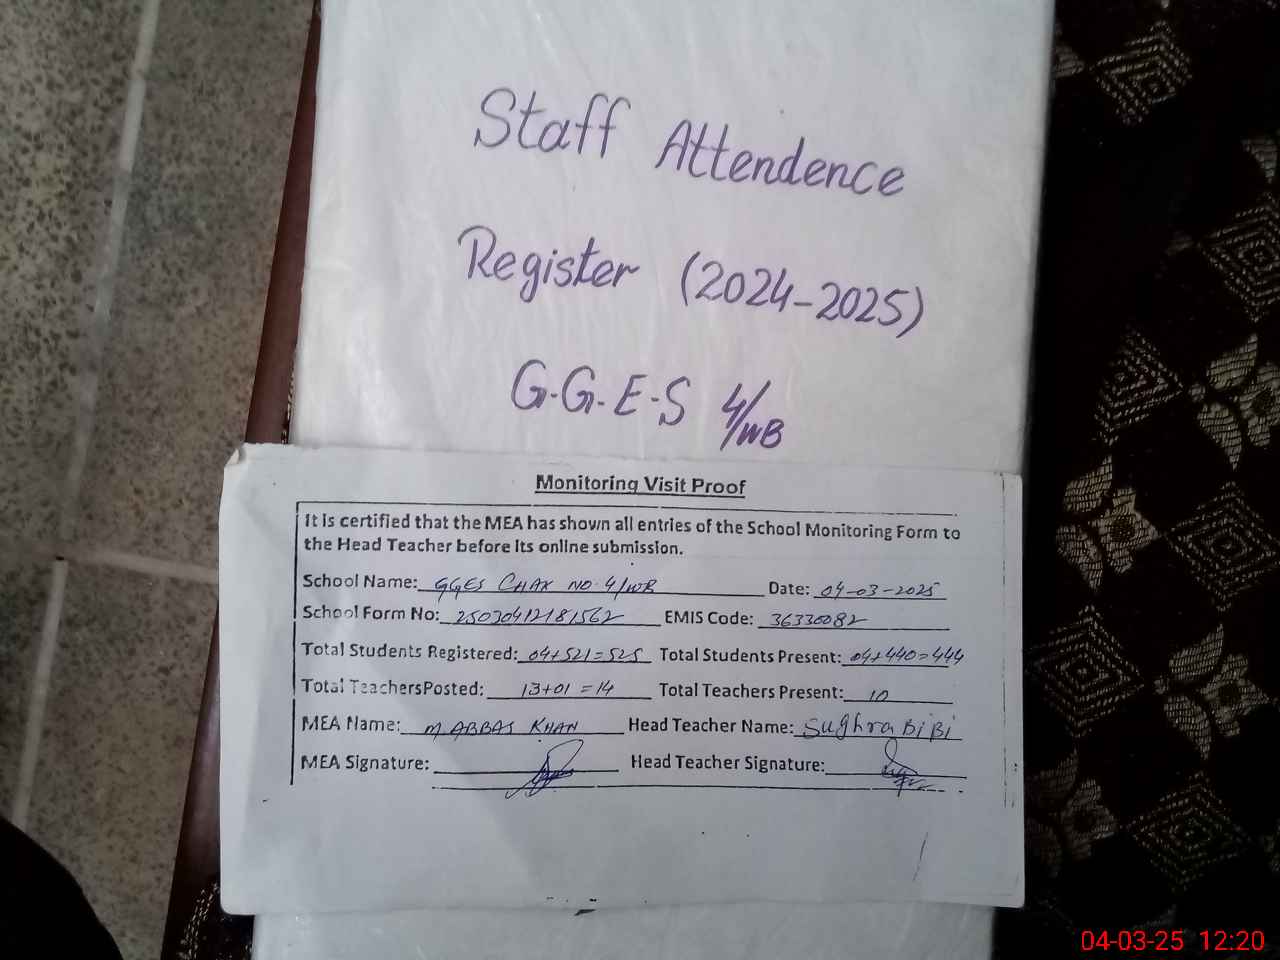 Staff Attendence
Register (2024-2025)
G.G.E.S 4/WB
Monitoring Visit Proof
It is certified that the MEA has shown all entries of the School Monitoring Form to
the Head Teacher before its online submission.
School Name: GGES CHAK NO. 4/WB Date: 04-03-2025
School Form No: 25030412181562 EMIS Code: 36330082
Total Students Registered: 04+521=525 Total Students Present: 04+440=444
Total TeachersPosted: 13+01=14 Total Teachers Present: 10
MEA Name: M. ABBAS KHAN Head Teacher Name: Sughra BiBi
MEA Signature: Head Teacher Signature:
04-03-25 12:20